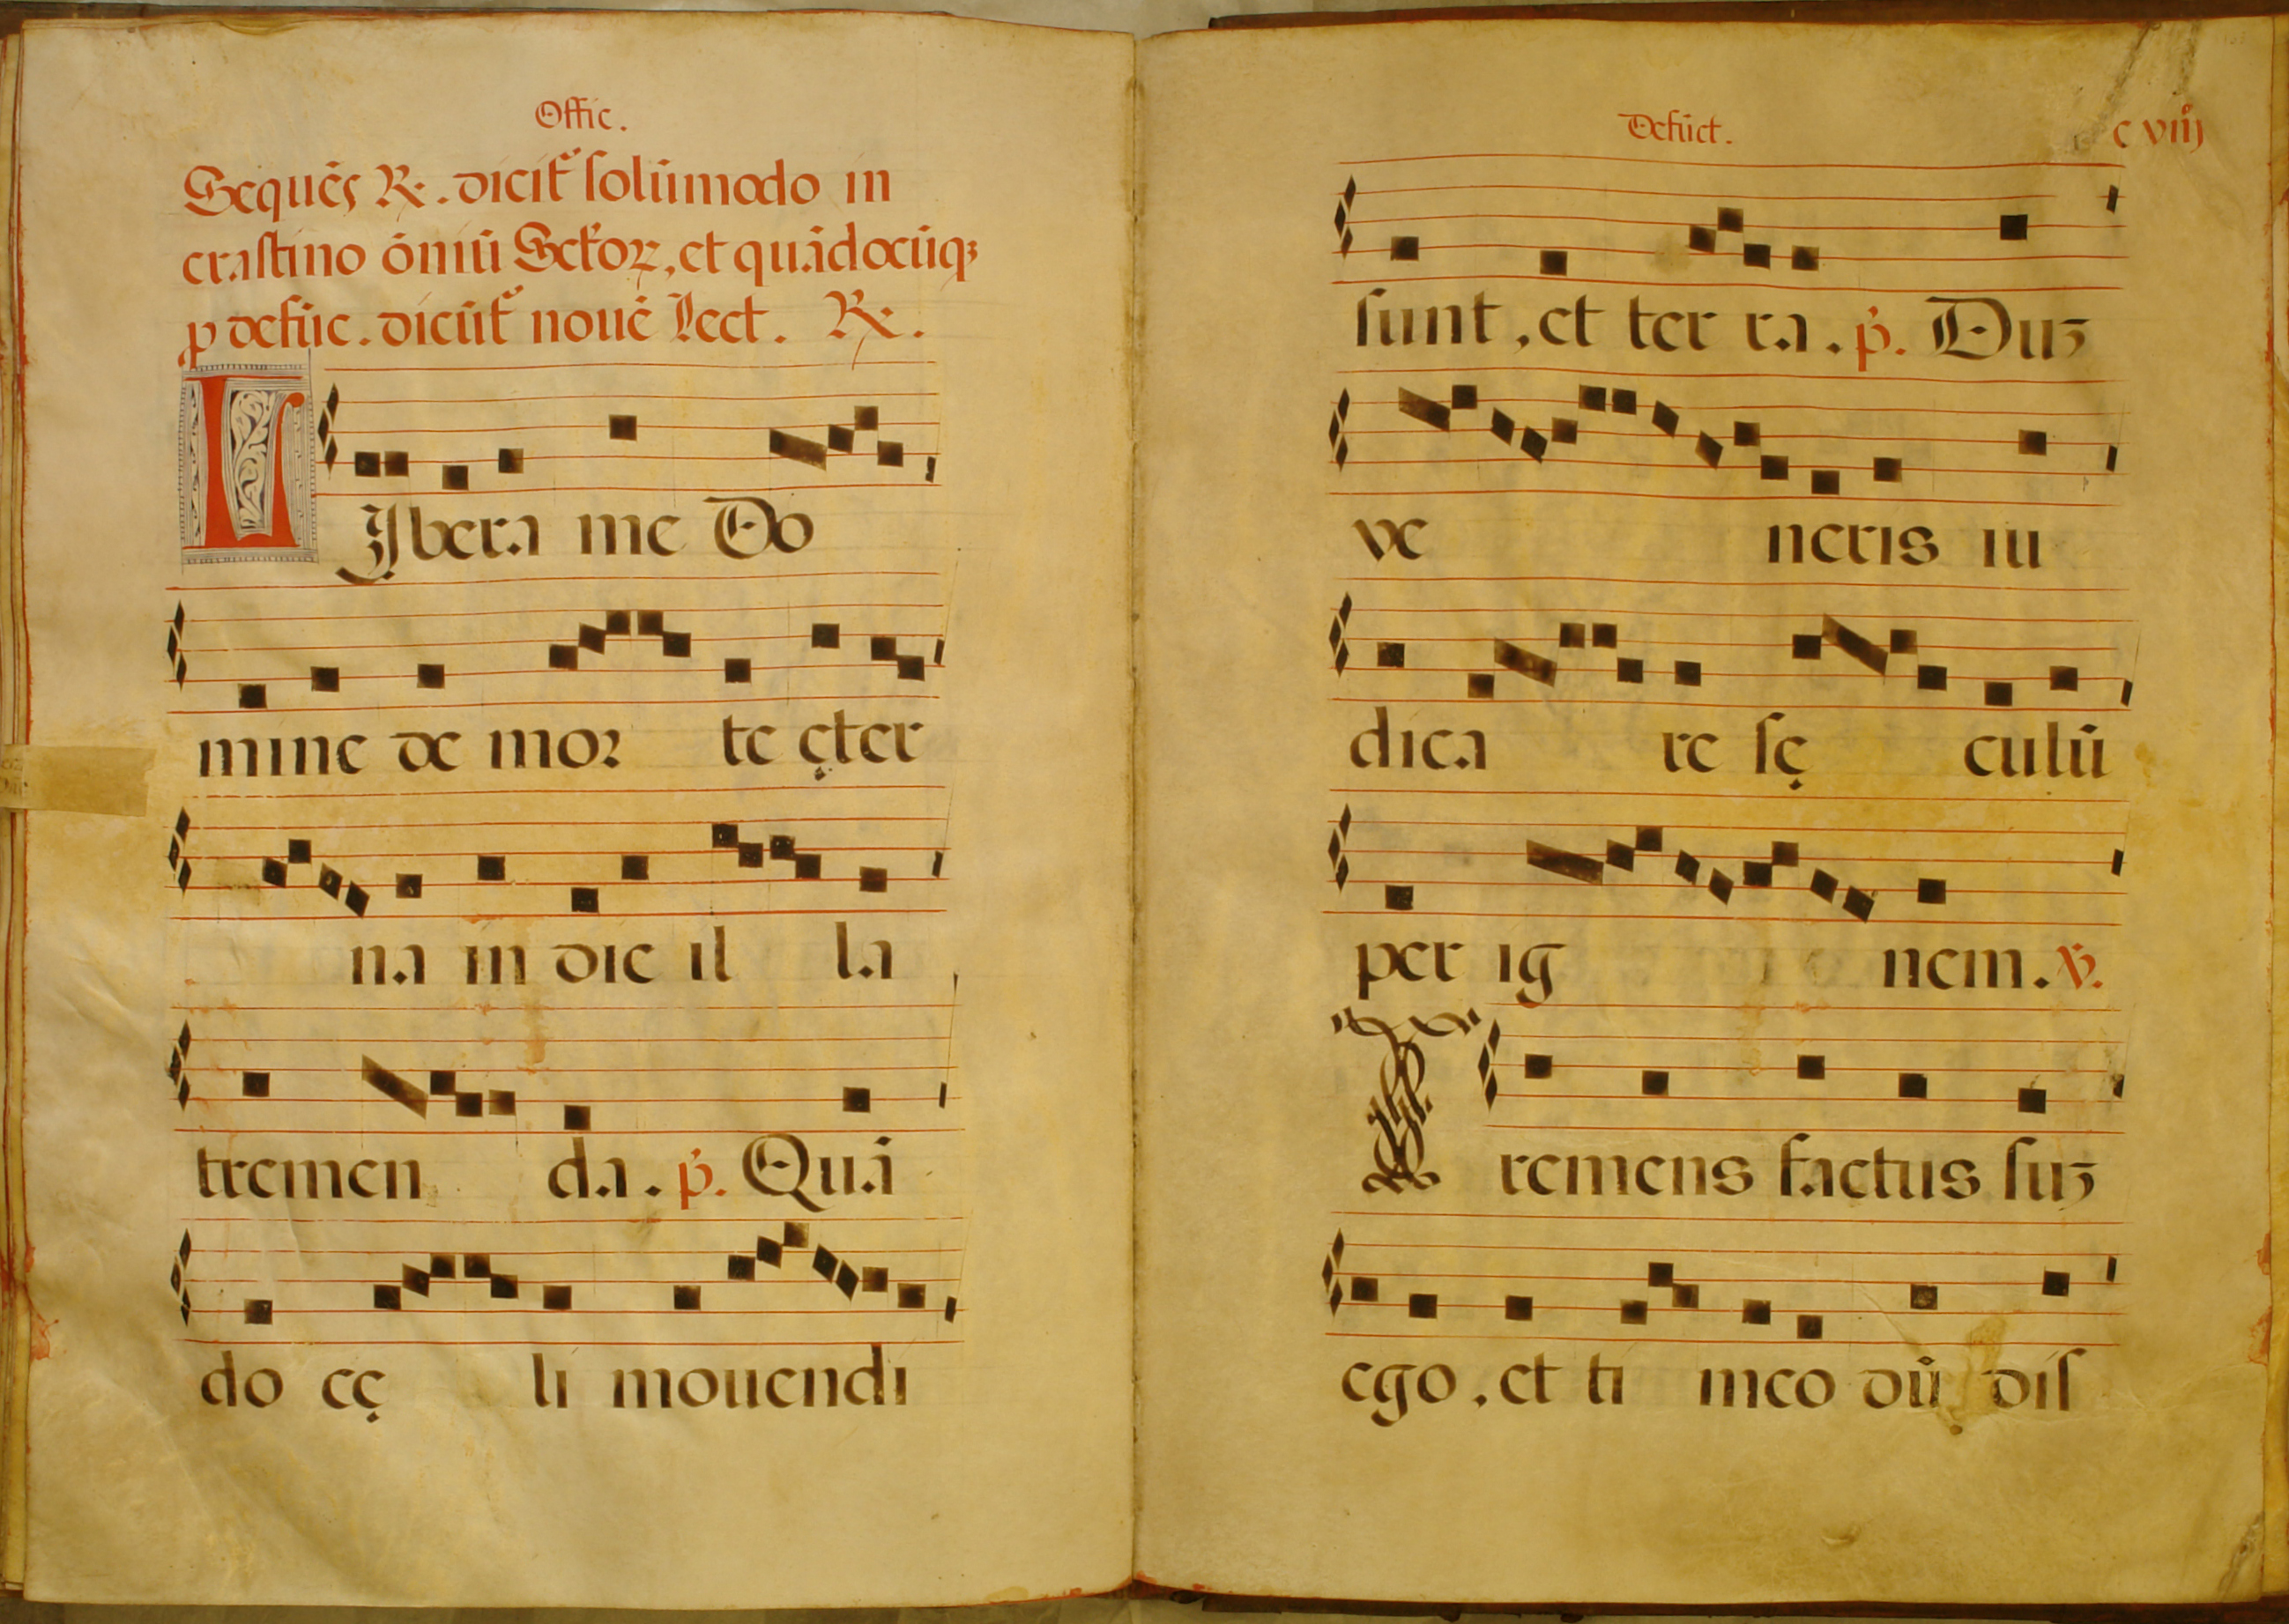 Offic.
Sequēs ℟. dicit᷑ solūmodo in
crastino ōniū Sctoꝝ, et quādocūqꝫ
ꝓ defūc. dicūt᷑ nouē Lect. ℟.
LIbera me Do
mine de mor te ęter
na in die il la
tremen da. p̄. Quā
do cę li mouendi
Defūct.
C viiij
sunt, et ter ra. p̄. Duꝫ
ve neris iu
dica re sę culū
per ig nem. ℣.
Tremens factus suꝫ
ego, et ti meo dū dis